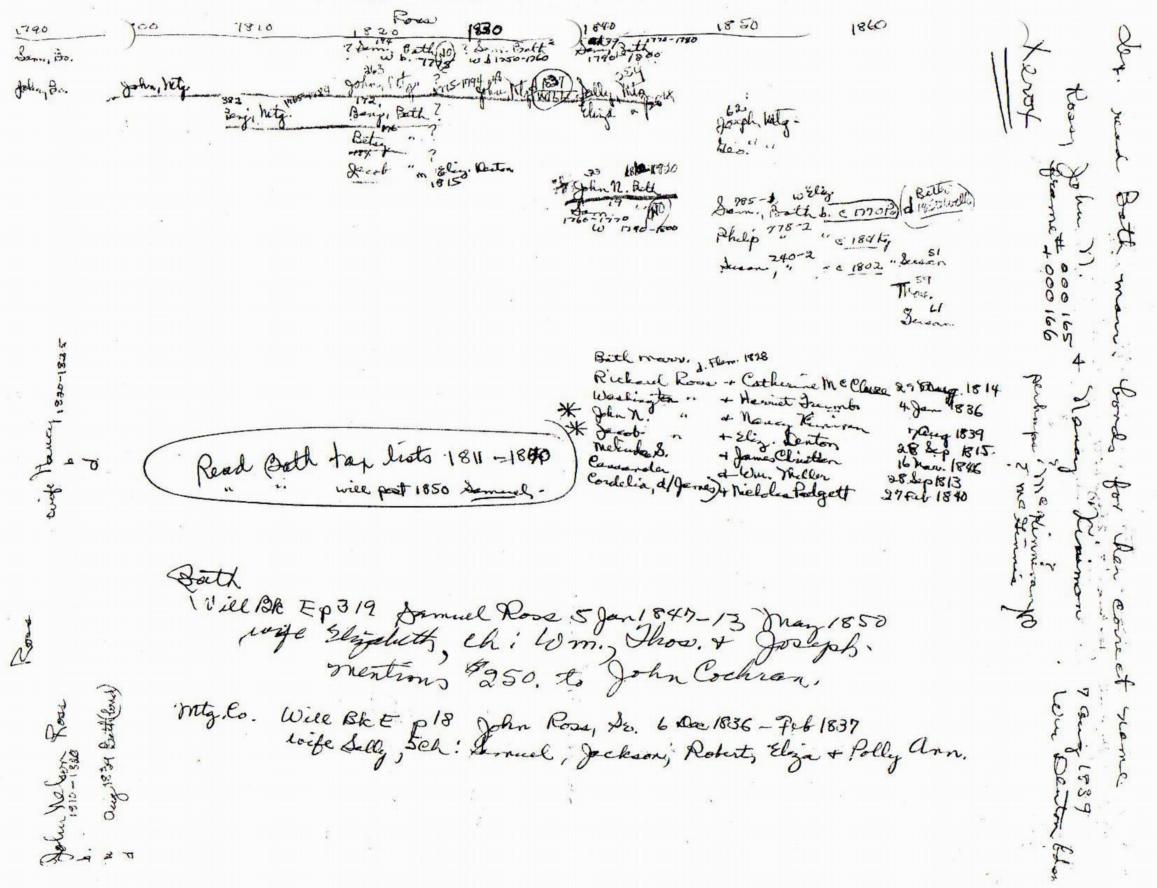 Ross
1790 1800 1810 1820 1830 1840 1850 1860
Sam, Bo.
? Sam. Bath (NO) ? Sam. Bath
w b. 1775 w d 1750-1760
1790-1800
John, Bo. John, Mtg John, Mtg ? 1775-1794 John, Mtg 1837 Will Sally, Mtg
Benj, Mtg. Benj, Bath ?
Betsy " ?
Jacob " m Eliz. Denton
1815
62
Joseph, Mtg-
Geo. " "
John N. Bath
Sam "
1760-1770 (NO)
W 1790-1800
785-2 w Eliz
Sam., Bath b. c 1770 Pa d Bath 1850 Will
778-2
Philip " " c 1804 Ky
240-2
Susan, " - c 1802 "Susan 51
59
Thos.
61
Susan
Bath marr. d. Flem. 1828
Richard Ross + Catherine McClure 29 Aug. 1814
Washington " + Harriet Trumbo 4 Jan 1836
John N. " + Nancy Kinivan 7 Aug 1839
Jacob " + Eliz. Denton 28 Sep 1815.
Melinda S. + James Christian 16 Mar. 1846
Cassander + Wm. Miller 28 Sep 1813
Cordelia, d/James + Nicholas Padgett 27 Feb 1840
**
Read Bath tax lists 1811-1840
" " will post 1850 Samuel-
Bath
Will Bk E p 319 Samuel Ross 5 Jan 1847-13 May 1850
wife Elizabeth, ch: Wm., Thos. & Joseph.
mentions $250. to John Cochran.
Mtg. Co. Will Bk E p 18 John Ross, Sr. 6 Dec 1836 - Feb 1837
wife Sally, 5 ch: Samuel, Jackson, Robert, Eliza & Polly Ann.
read Bath marr. bonds for her correct name
Ross, John N. & Nancy Kinimon 7 Aug 1839
frame # 000165 + 000166 perhaps McKinnivan Levi Denton bdsm
? McKinnie
Xerox
wife Nancy 1820-1825
b
d
Ross
John Nelson Ross
b. 1810-1820
m Aug 1839 Bath (bond)
d